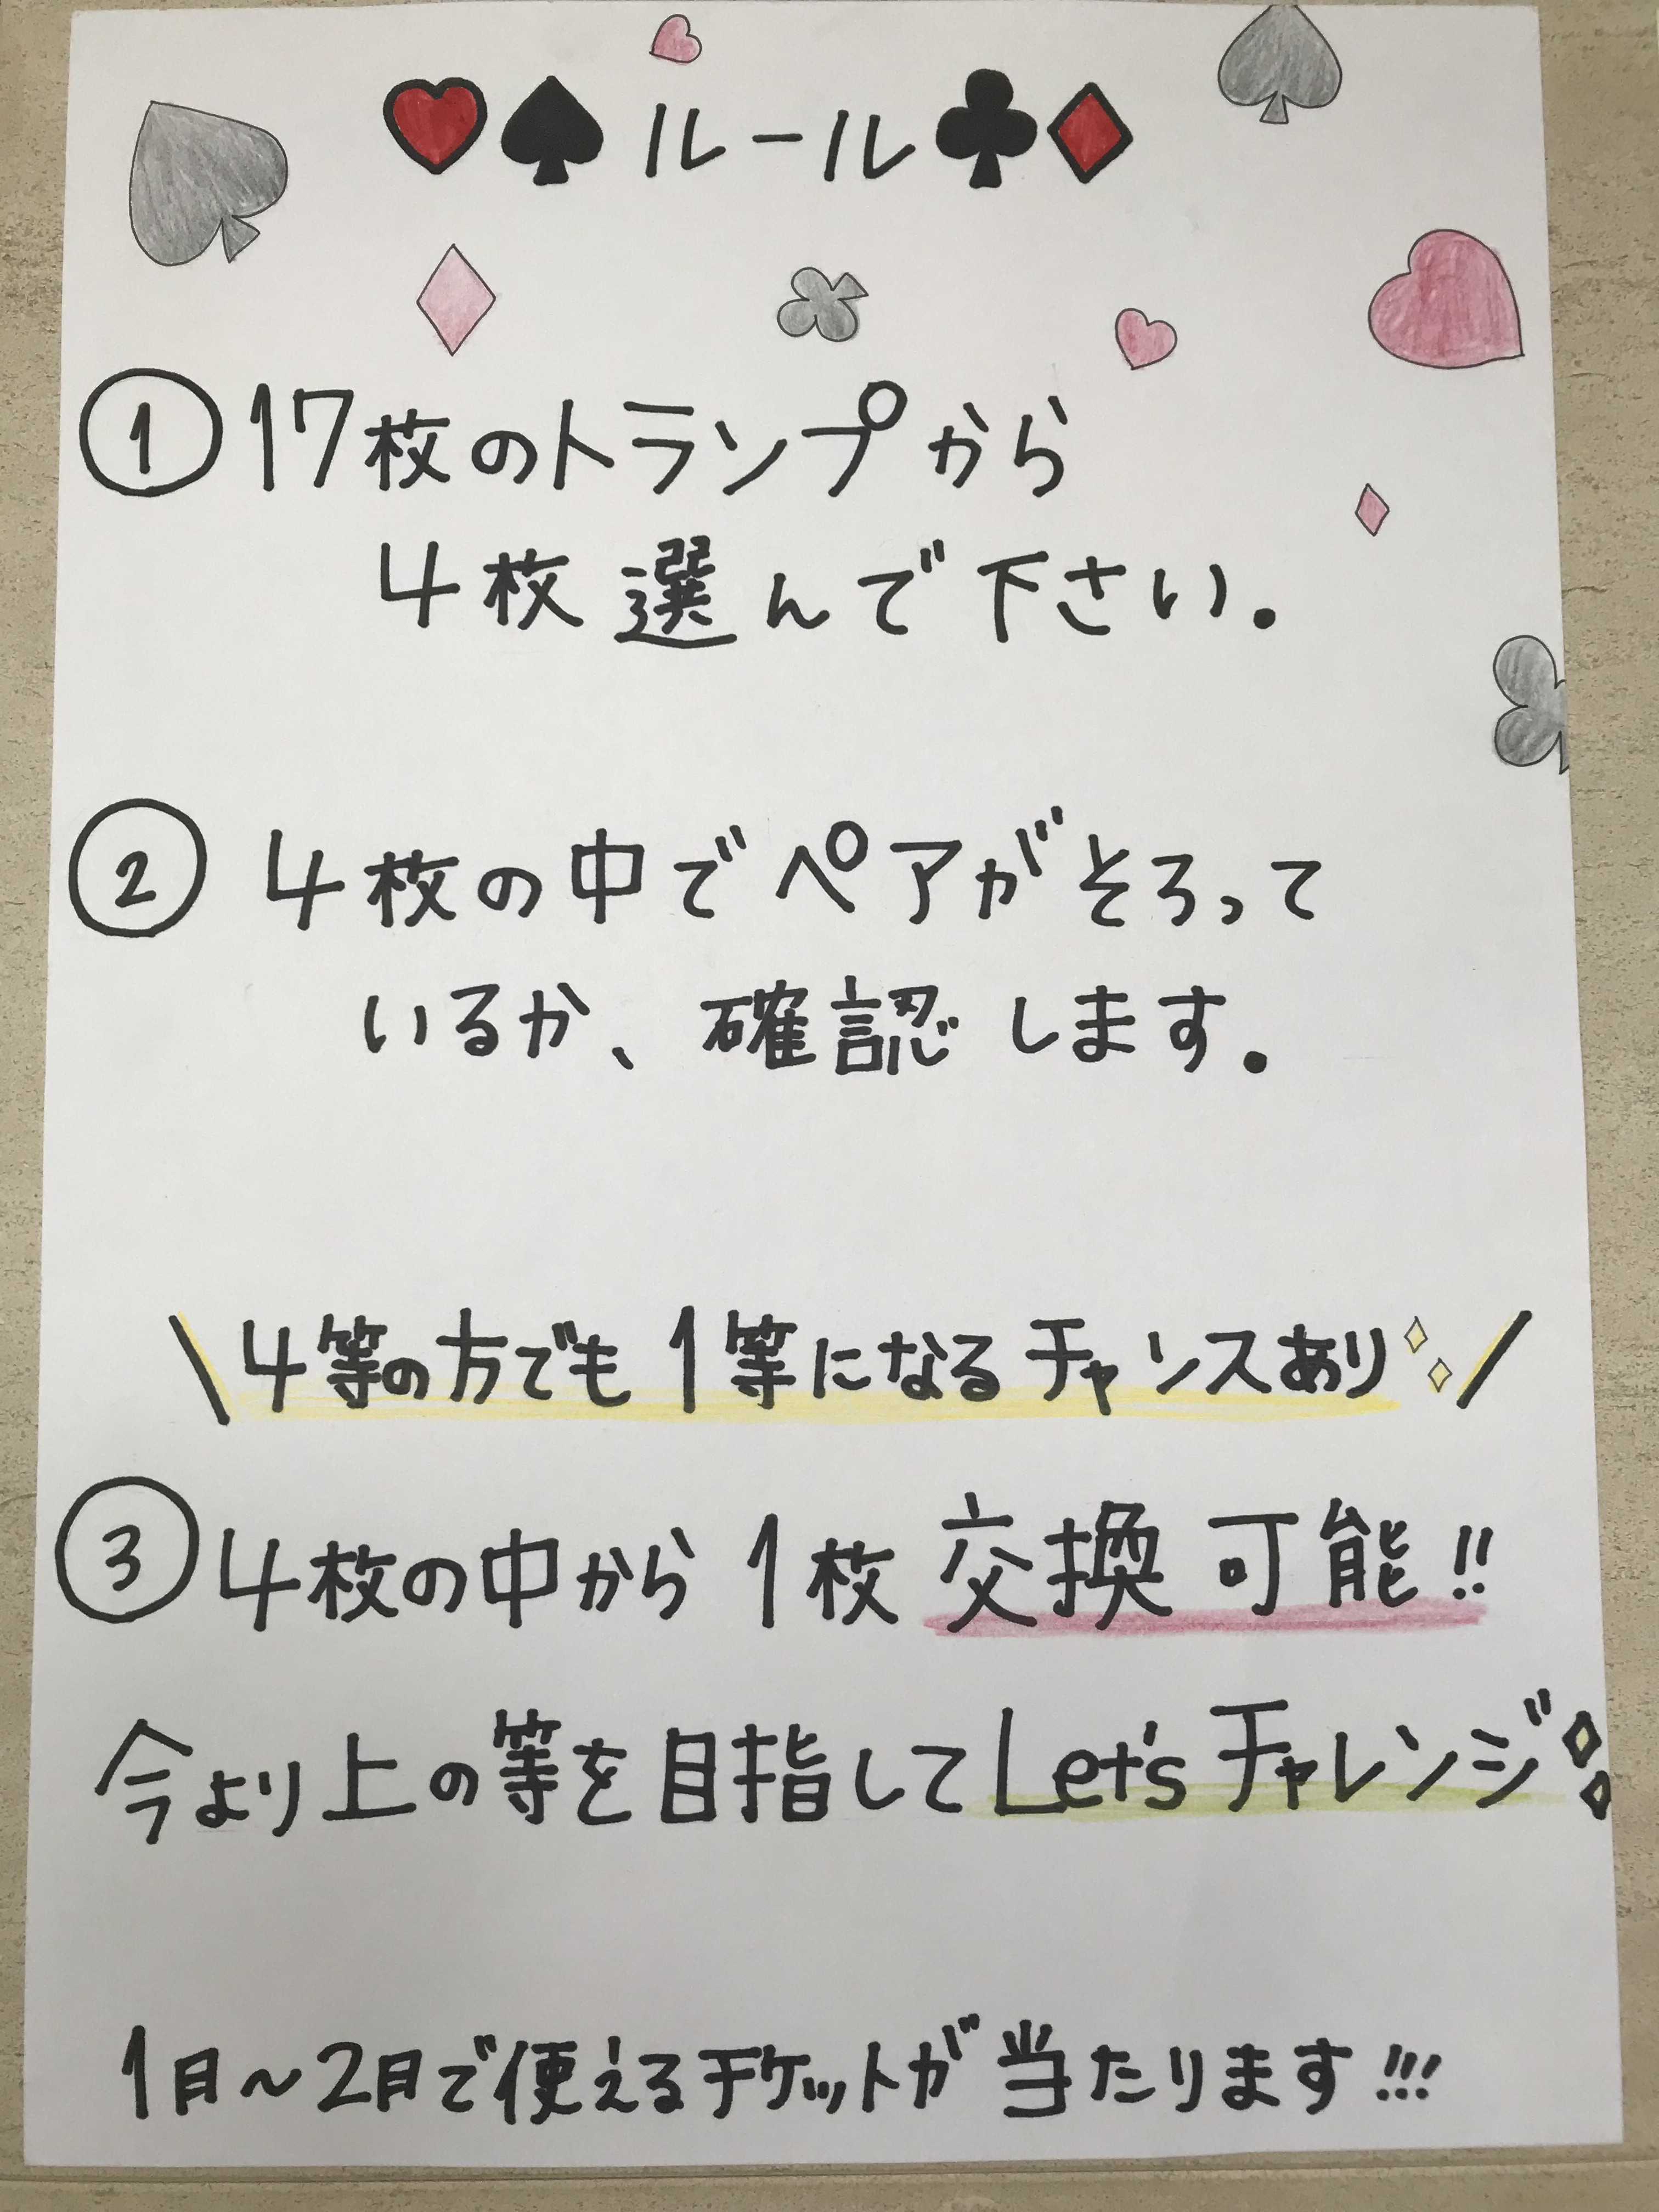 ♥♠ルール♣♦
① 17枚のトランプから
4枚選んで下さい。
② 4枚の中でペアがそろって
いるか、確認します。
\4等の方でも1等になるチャンスあり/
③ 4枚の中から1枚交換可能!!
今より上の等を目指してLet'sチャレンジ
1月～2月で使えるチケットが当たります!!!